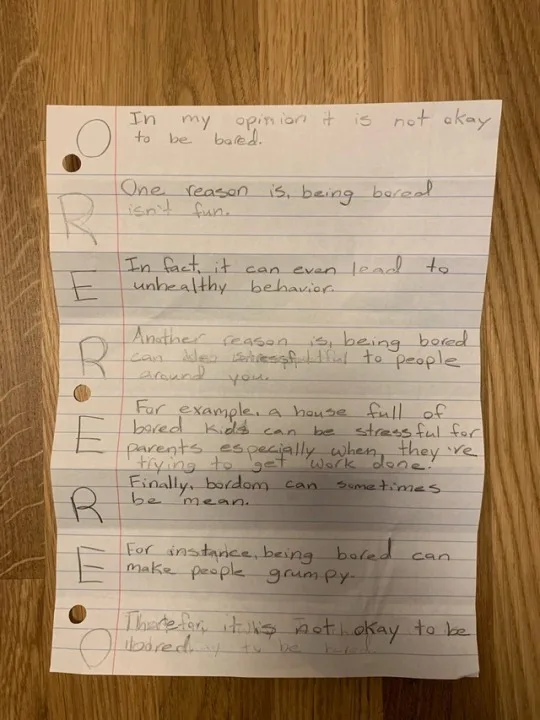 O In my opinion it is not okay
to be bored.
R One reason is, being bored
isn't fun.
E In fact, it can even lead to
unhealthy behavior.
R Another reason is, being bored
can to people
around you.
E For example, a house full of
bored kids can be stressful for
parents especially when, they've
trying to get work done.
R Finally, bordom can sometimes
be mean.
E For instance, being bored can
make people grumpy.
O it is not okay to be
bored.